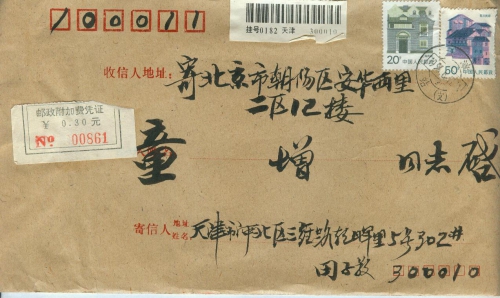 100011
挂号0182 天津 300010
20分 中国人民邮政
50分 中国人民邮政
收信人地址: 寄北京市朝阳区安华西里
二区12楼
邮政附加费凭证
¥ 0.30元
No 00861
童增 同志 启
寄信人 地址 姓名 天津市河北区三经路乾晖里5号302#
田子教 300010